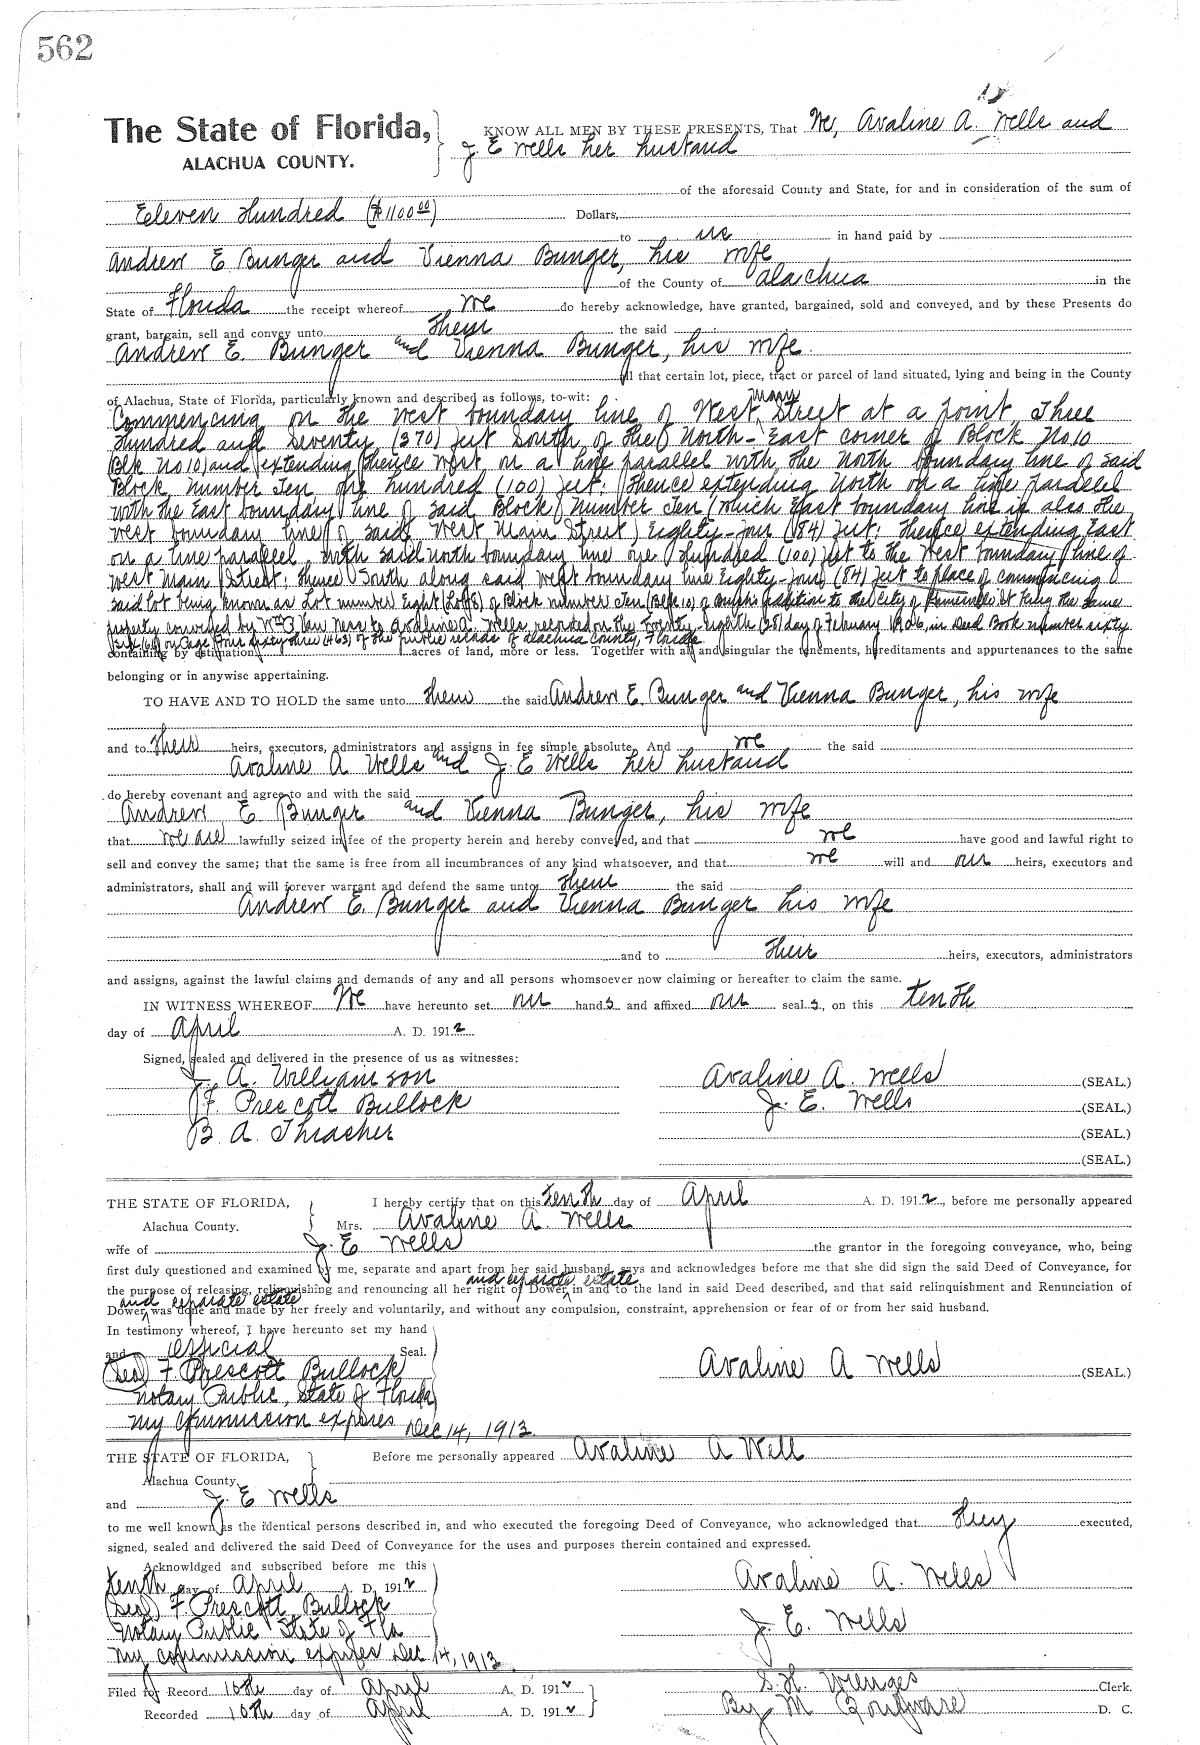 562
The State of Florida, KNOW ALL MEN BY THESE PRESENTS, That We, Avaline A. Wells and
ALACHUA COUNTY. J E Wells her husband
of the aforesaid County and State, for and in consideration of the sum of
Eleven Hundred ($1100.00) Dollars,
to us in hand paid by
Andrew E Bunger and Vienna Bunger, his wife
of the County of Alachua in the
State of Florida the receipt whereof we do hereby acknowledge, have granted, bargained, sold and conveyed, and by these Presents do
grant, bargain, sell and convey unto them the said
Andrew E. Bunger and Vienna Bunger, his wife.
all that certain lot, piece, tract or parcel of land situated, lying and being in the County
of Alachua, State of Florida, particularly known and described as follows, to-wit:
Commencing on the West boundary line of West Main Street at a point Three
Hundred and Seventy (370) feet South of the North-East corner of Block No 10
Blk No 10) and extending thence West, on a line parallel with the North boundary line of said
Block number Ten one hundred (100) feet; thence extending North on a line parallel
with the East boundary line of said Block number Ten (which East boundary line is also the
West boundary line of said West Main Street) Eighty-four (84) feet; thence extending East
on a line parallel with said north boundary line one Hundred (100) feet to the West boundary line of
West Main Street; thence South along said West boundary line Eighty-four (84) feet to place of commencing
said lot being known as Lot number Eight (Lot 8) of Block number Ten (Blk 10) of addition to the City of it being the same
property conveyed by Van Ness to Avaline A. Wells, recorded on the Twenty-eighth (28) day of February in Deed Book number sixty
on Page Four sixty three (463) of the public records of Alachua County, Florida
containing by estimation acres of land, more or less. Together with all and singular the tenements, hereditaments and appurtenances to the same
belonging or in anywise appertaining.
TO HAVE AND TO HOLD the same unto them the said Andrew E. Bunger and Vienna Bunger, his wife
and to their heirs, executors, administrators and assigns in fee simple absolute. And we the said
Avaline A Wells and J E Wells her husband
do hereby covenant and agree to and with the said
Andrew E Bunger and Vienna Bunger, his wife
that we are lawfully seized in fee of the property herein and hereby conveyed, and that we have good and lawful right to
sell and convey the same; that the same is free from all incumbrances of any kind whatsoever, and that we will and our heirs, executors and
administrators, shall and will forever warrant and defend the same unto them the said
Andrew E. Bunger and Vienna Bunger his wife
and to their heirs, executors, administrators
and assigns, against the lawful claims and demands of any and all persons whomsoever now claiming or hereafter to claim the same.
IN WITNESS WHEREOF We have hereunto set our hands and affixed our seals, on this tenth
day of April A. D. 1912
Signed, sealed and delivered in the presence of us as witnesses:
J. A. Williamson Avaline A. Wells (SEAL.)
F. Prescott Bullock J. E. Wells (SEAL.)
B. A. Thrasher (SEAL.)
(SEAL.)
THE STATE OF FLORIDA, I hereby certify that on this tenth day of April A. D. 1912, before me personally appeared
Alachua County. Mrs. Avaline A. Wells
wife of J. E Wells the grantor in the foregoing conveyance, who, being
first duly questioned and examined by me, separate and apart from her said husband, says and acknowledges before me that she did sign the said Deed of Conveyance, for
and separate estate
the purpose of releasing, relinquishing and renouncing all her right of Dower in and to the land in said Deed described, and that said relinquishment and Renunciation of
and separate estate
Dower, was done and made by her freely and voluntarily, and without any compulsion, constraint, apprehension or fear of or from her said husband.
In testimony whereof, I have hereunto set my hand
and official Seal.
(Seal) F Prescott Bullock Avaline A Wells (SEAL)
Notary Public, State of Florida
My commission expires Dec 14, 1913.
THE STATE OF FLORIDA, Before me personally appeared Avaline A Well
Alachua County.
and J. E Wells
to me well known as the identical persons described in, and who executed the foregoing Deed of Conveyance, who acknowledged that they executed,
signed, sealed and delivered the said Deed of Conveyance for the uses and purposes therein contained and expressed.
Acknowldged and subscribed before me this
tenth day of April A. D. 1912 Avaline A. Wells
(Seal) F. Prescott Bullock
Notary Public State of Fla J. E. Wells
My commission expires Dec 14, 1913.
Filed for Record 10th day of April A. D. 1912 S. H. Wienges Clerk.
Recorded 10th day of April A. D. 1912 By M D. C.